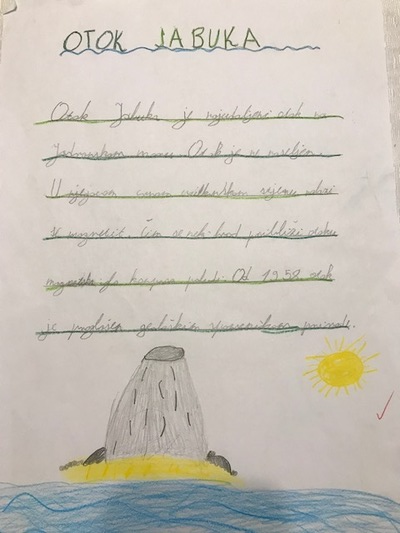 OTOK JABUKA
Otok Jabuka je najudaljeniji otok na
Jadranskom moru. Otok je
U njegovom crnom eruptivnom stijenu nalazi
se magnetit. Čim se neki brod približi otoku
magnetska igla kompasa poludi. Od 1958. otok
je proglašen geološkim spomenikom prirode.